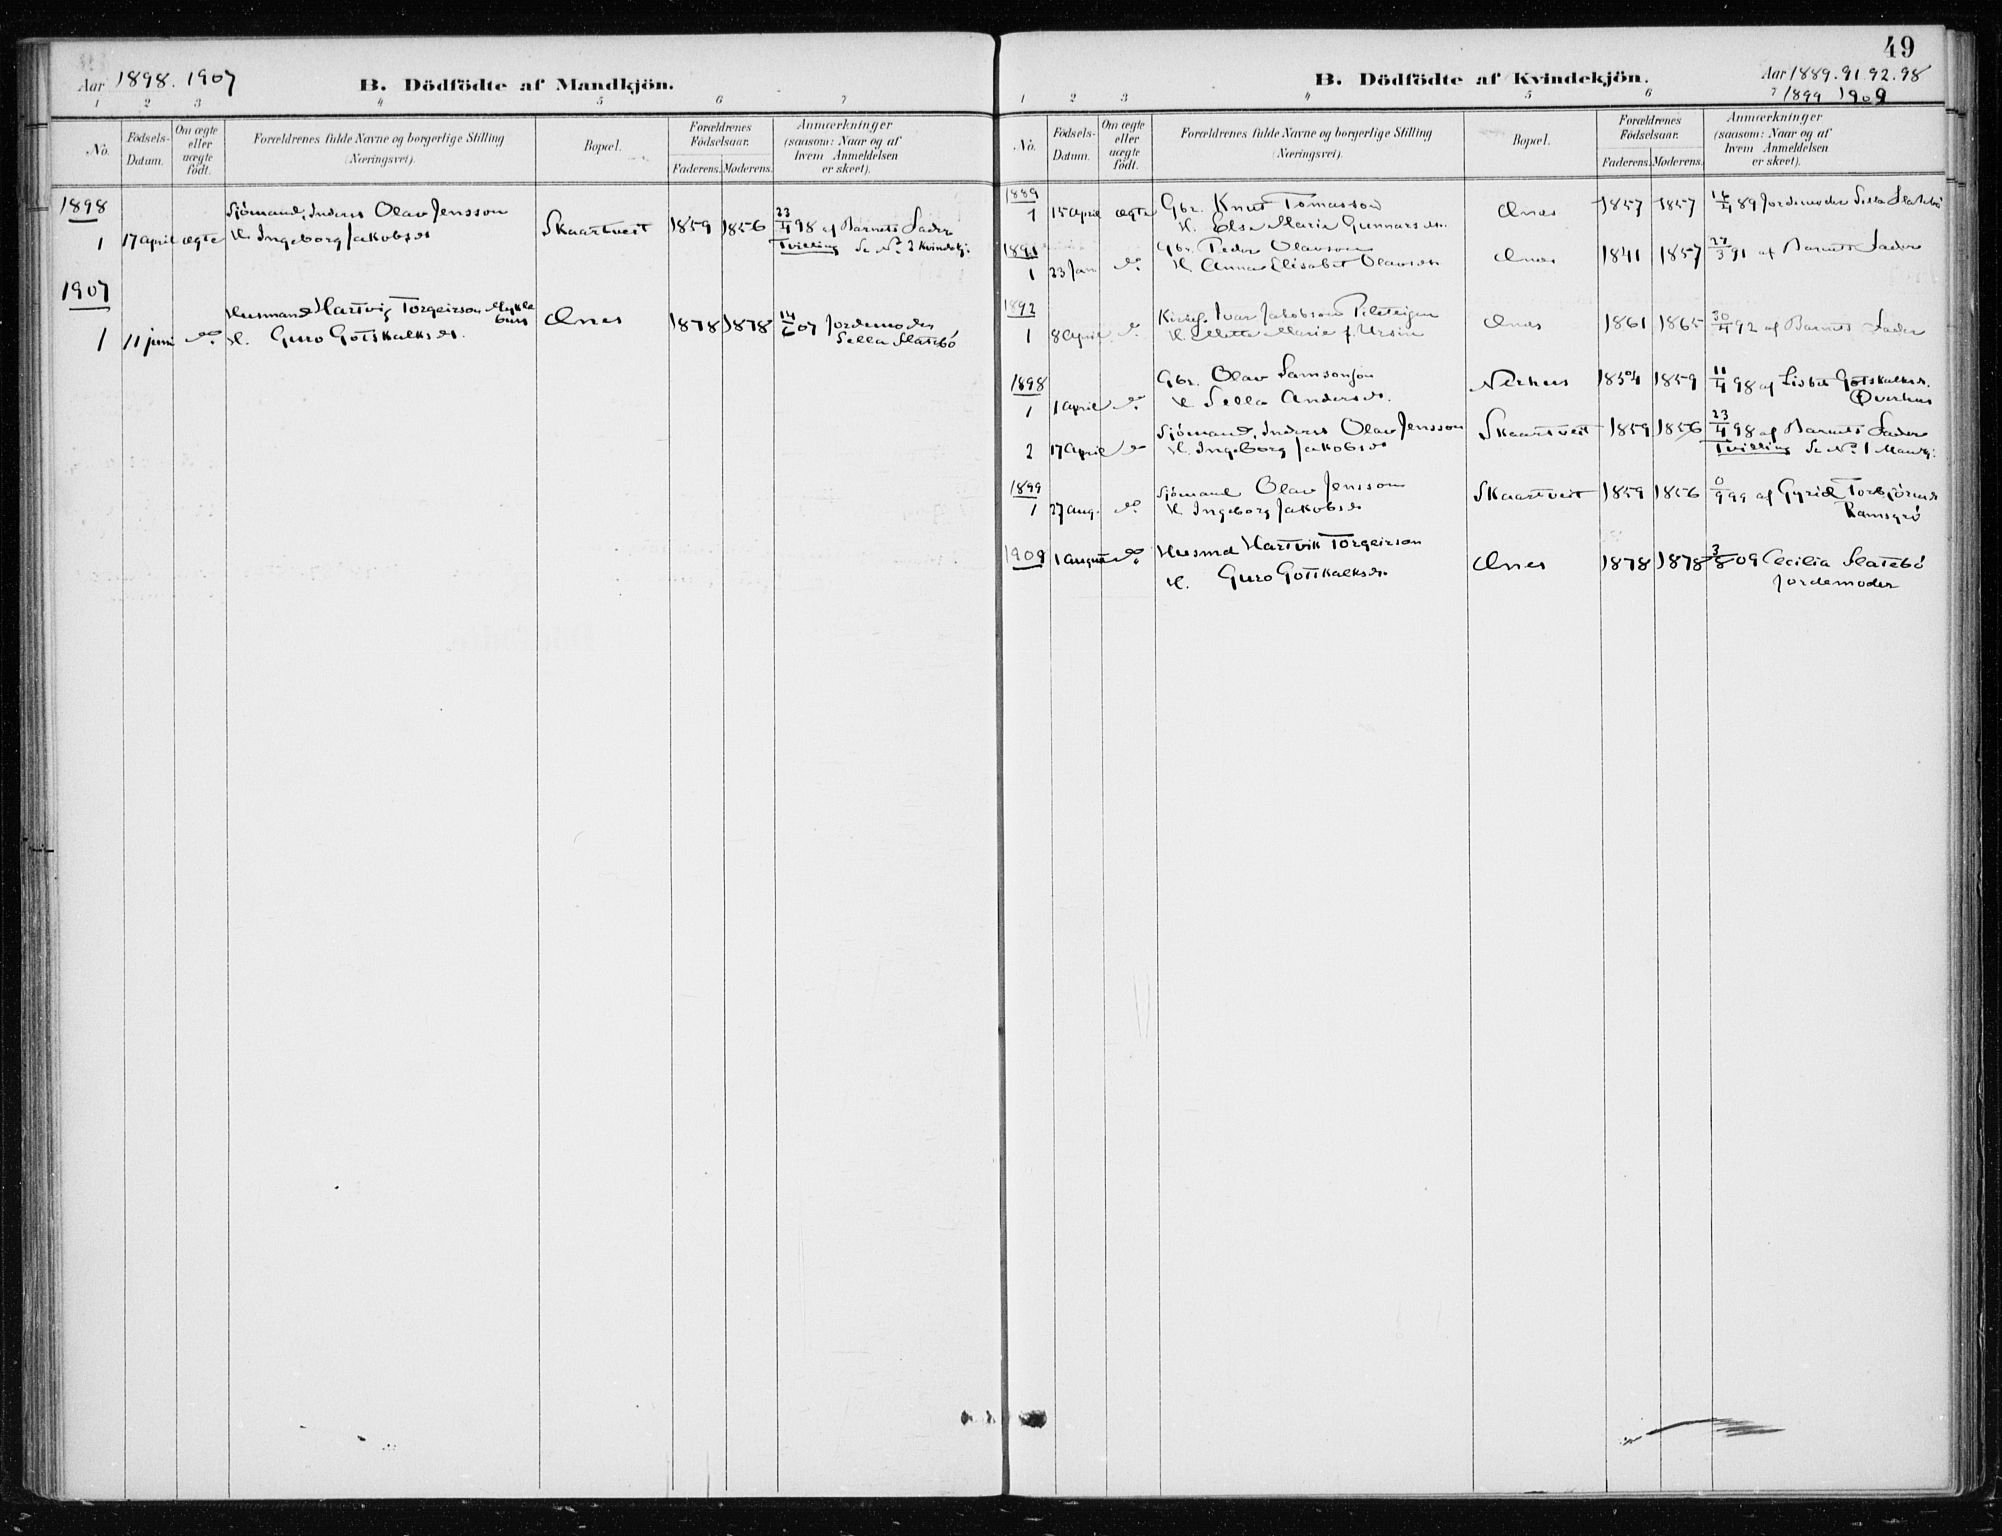 Aar 1898. 1907
B. Dödfödte af Mandkjön.
1 2 3 4 5 6 7
No.
Födsels-Datum.
Om ægte eller uægte födt.
Forældrenes fulde Navne og borgerlige Stilling (Næringsvei).
Bopæl.
Forældrenes Födselsaar.
Faderens. Moderens.
Anmærkninger (saasom: Naar og af hvem Anmeldelsen er skeet).
1898
Sjömand, Olav Jensson
1 17 april ægte H. Ingeborg Jakobsdr Skaartveit 1859 1856 23/4 98 af Barnets Fader
Tvilling Se No 2 Kvindekj.
1907
Husmand Hartvig Torgeirson Mykle
bust
1 11 juni do. H. Guro Gotskalksdr. Ænes 1878 1878 14/6 07 Jordemoder
Sella Flatebö
49
B. Dödfödte af Kvindekjön.
Aar 1889. 91. 92. 98
1899 1909
1 2 3 4 5 6
No.
Födsels-Datum.
Om ægte eller uægte födt.
Forældrenes fulde Navne og borgerlige Stilling (Næringsvei).
Bopæl.
Forældrenes Födselsaar.
Faderens. Moderens.
Anmærkninger (saasom: Naar og af hvem Anmeldelsen er skeet).
1889
1 15 April ægte Gbr. Knut Tomasson Ænes 1857 1857 89 Jordemoder Sella Flatebö
H. Else Marie Gunnarsdr.
1891
Gbr. Peder Olavson
1 23 Jan do. H. Anna Elisabet Olavsdr Ænes 1841 1857 22/3 91 af Barnets Fader
1892
Ivar Jakobson
1 8 April do. H. Mette Marie f. Ursin Ænes 1861 1865 30/4 92 af Barnets Fader
1898
Gbr. Olav Samsonson
1 1 april do. H. Sella Andersdr. Nerhus 1854 1859 11/4 98 af Lisbet Gotskalksdr.
Øverhus
Sjömand, Olav Jensson
2 17 april do H. Ingeborg Jakobsdr Skaartveit 1859 1856 23/4 98 af Barnets Fader
Tvilling Se No 1 Mandkj.
1899
Sjömand Olav Jensson
1 27 aug. do. H. Ingeborg Jakobsdr Skaartveit 1859 1856 9 99 af Gyrid Torbjörnsdr
Ramsgrö
1909 1 august do. Husmd Hartvik Torgeirson
H. Guro Gottskalksdr. Ænes 1878 1878 3/8 09 Cecilia Flatebö
Jordemoder